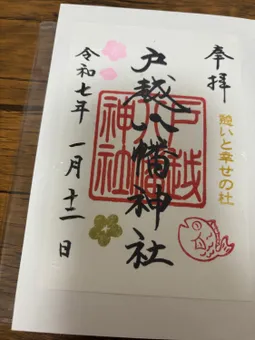 奉拝
憩いと幸せの杜
戸越八幡神社
戸越八幡神社
令和七年一月十二日